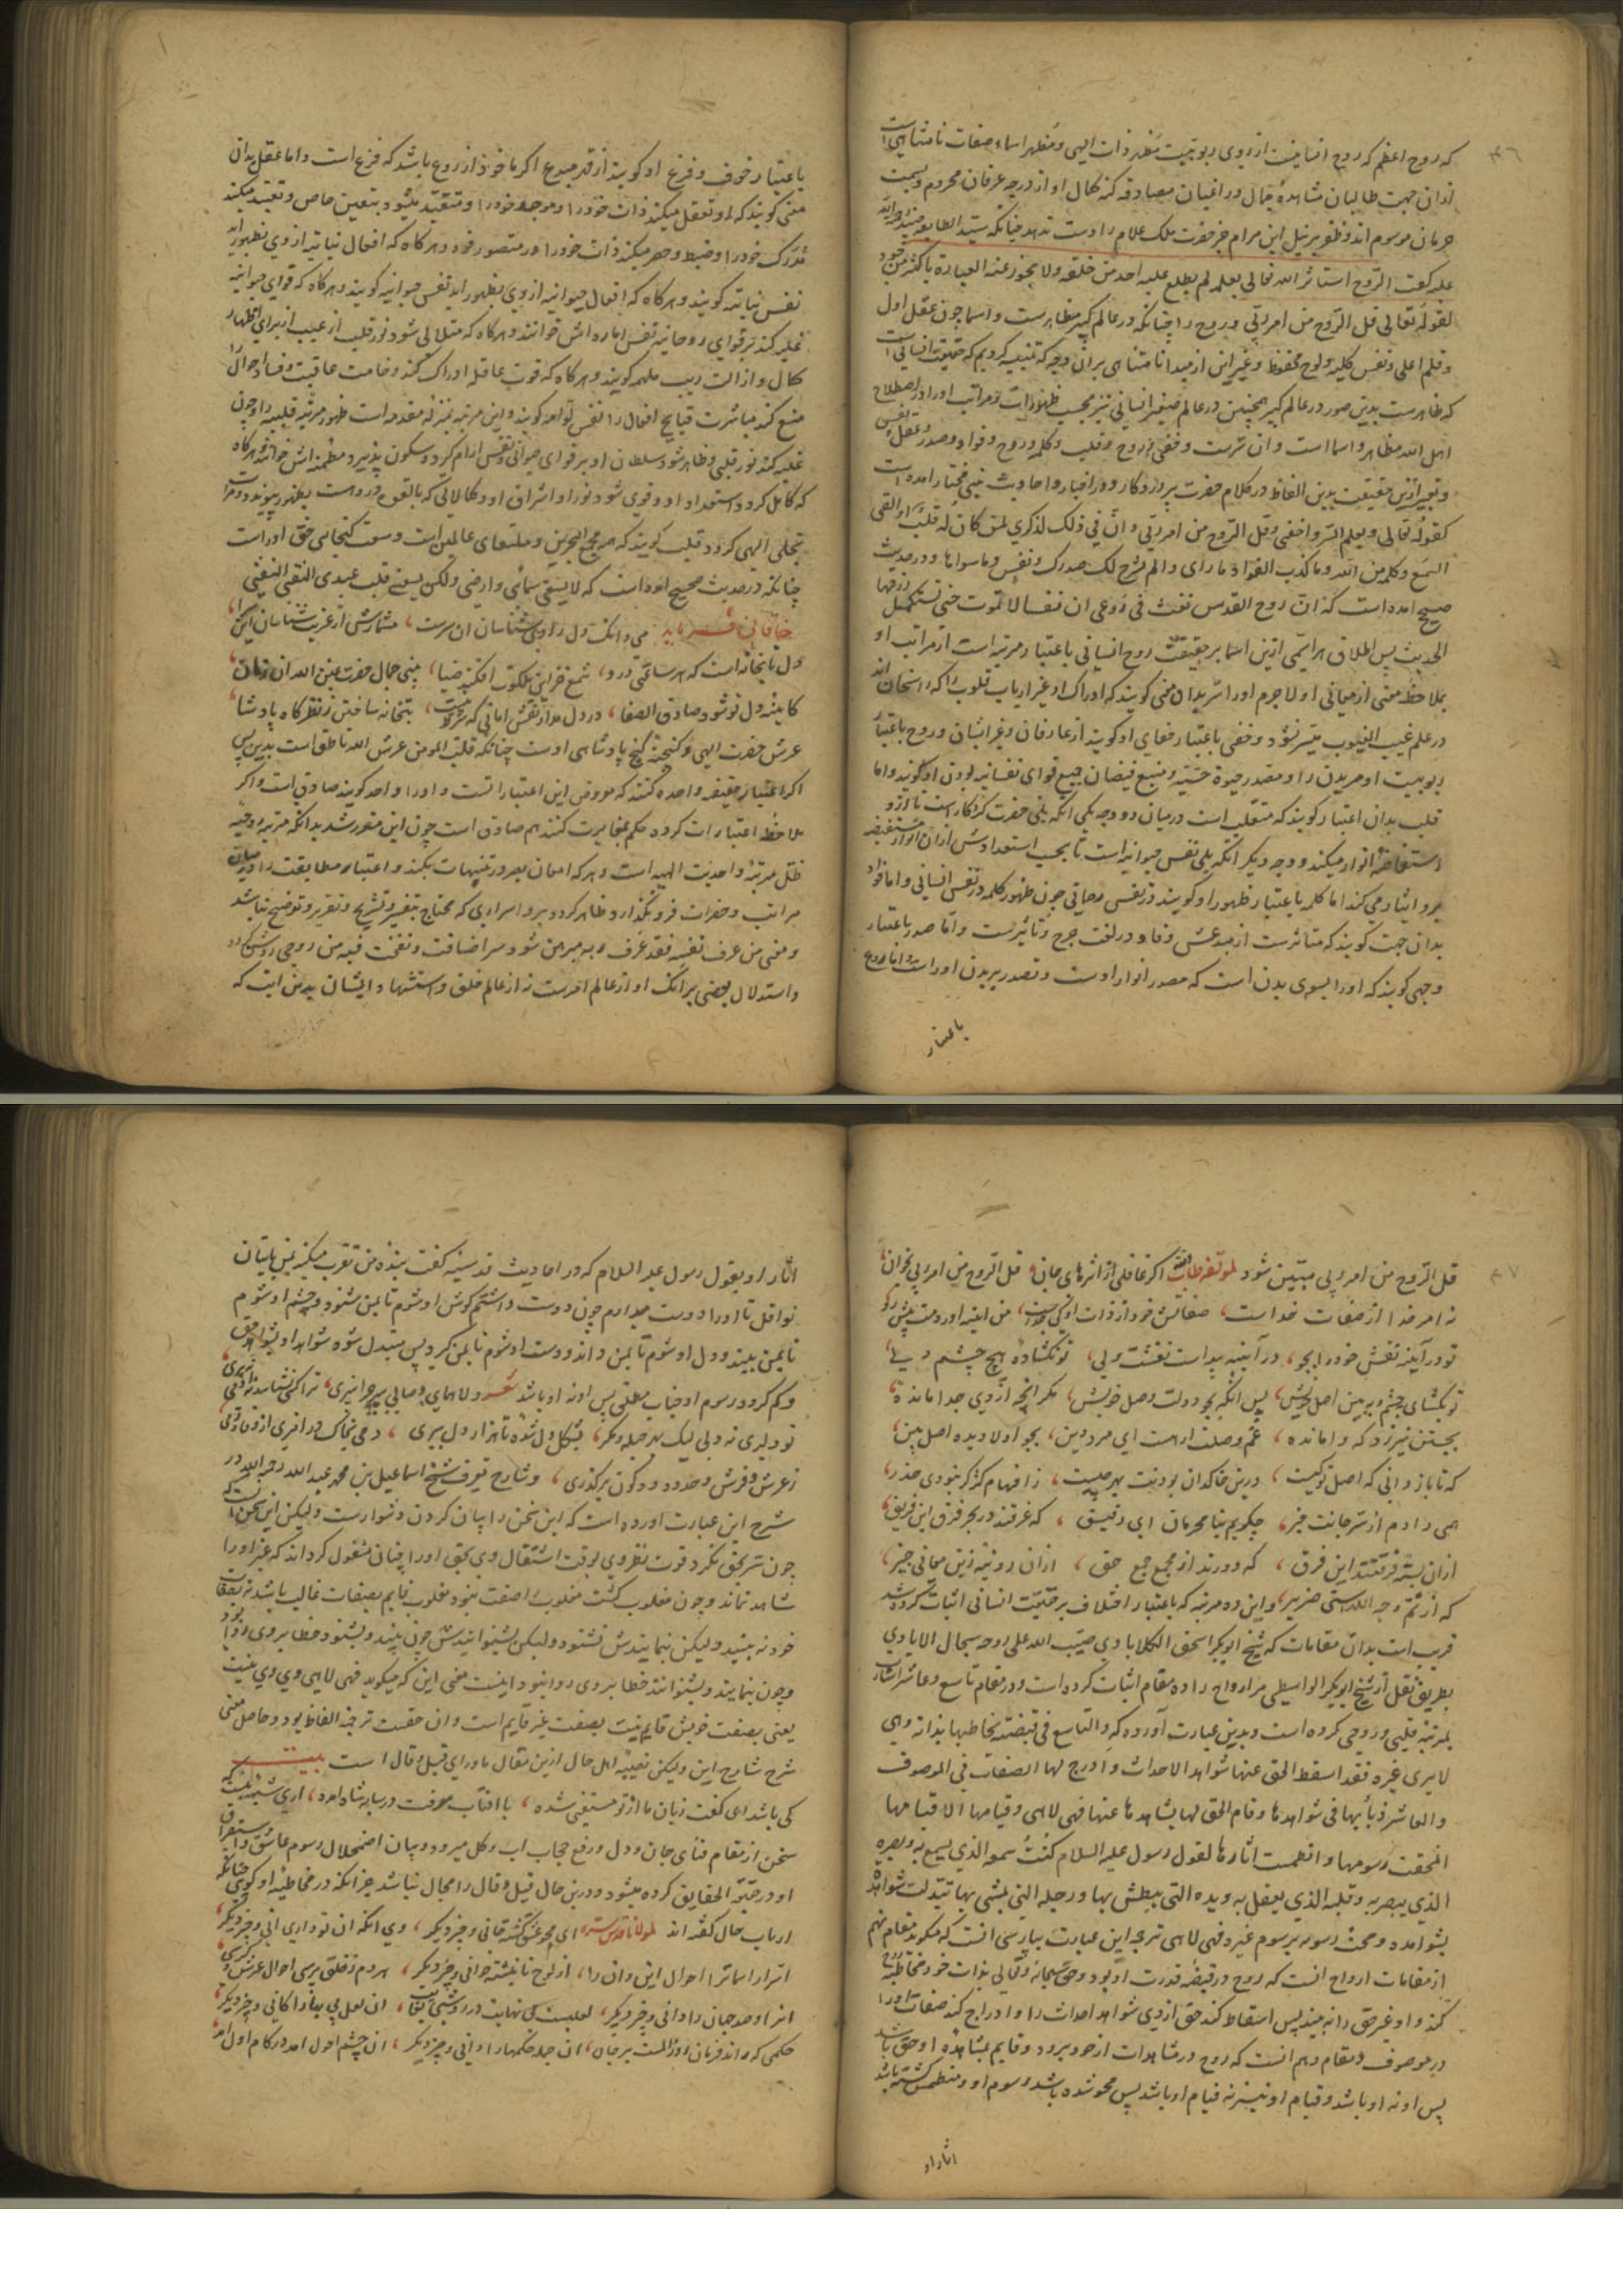 ٤٦
که روح اعظم که روح انسانیست از روی ربوبیت مظهر ذات الهی و مظهر اسماء صفات نامتناهی است
ازان جهت طالبان مشاهدهٔ جمال و راغبان مصادفه کنه کمال او از درجه عرفان محروم و بسمت
حرمان موسوم اند و ظفر بر نیل این مرام جز حضرت ملک علام را دست ندهد چنانکه سید الطایفه جنید رحمة الله
علیه گفت الروح استاثر الله تعالی بعلمه لم یطلع علیه احد من خلقه ولا یجوز عنه العبارة باکثر من موجود
لقوله تعالی قل الروح من امر ربی و روح را چنانکه در عالم کبیر مظاهرست و اسما چون عقل اول
و قلم اعلی و نفس کلیه و لوح محفوظ و غیر این از مبدا نامتناهی بران وجه که تنبیه کردیم که حقیقت انسانی است
که ظاهرست بدین صور در عالم کبیر همچنین در عالم صغیر انسانی نیز بحسب ظهورات و مراتب او را در اصطلاح
اهل الله مظاهر و اسما است و ان سرست و خفی و روح و قلب و کلمه و روح و فواد و صدر و عقل و نفس
و تعبیر ازین حقیقت بدین الفاظ در کلام حضرت پروردگار و در اخبار و احادیث نبی مختار امده است
کقوله تعالی و یعلم السر و اخفی و قل الروح من امر ربی و ان فی ذلک لذکری لمن کان له قلب او القی
السمع و کلمة من الله و ما کذب الفواد ما رای و الم نشرح لک صدرک و نفس و ما سواها و در حدیث
صحیح امده است که ان روح القدس نفث فی روعی ان نفسا لا تموت حتی تستکمل رزقها
الحدیث پس اطلاق هر اسمی ازین اسما بر حقیقت روح انسانی باعتبار مرتبه است از مراتب او
بملاحظه معنی از معانی او لاجرم او را سر بدان معنی گویند که ادراک او غیر ارباب قلوب را که راسخان اند
در علم غیب الغیوب میسر نشود و خفی باعتبار خفای او گویند از عارفان و غیر ایشان و روح باعتبار
ربوبیت او مر بدن را و مصدر حیوة حسیه و منبع فیضان جمیع قوای نفسانیه بودن او گویند و اما
قلب بدان اعتبار گویند که متقلب است در میان دو وجه یکی انکه یلی حضرت کردگار است تا ازو
استفاضهٔ انوار میکند و وجه دیگر انکه یلی نفس حیوانیه است تا بحسب استعدادش ازان انوار مستفیضه
برو ایثار می کند اما کلمه باعتبار ظهور او گویند در نفس رحمانی چون ظهور کلمه در نفس انسانی و اما فواد
بدان جهت گویند که متاثرست از مبدعش و فاد در لغت جرح و تاثیرست و اما صدر باعتبار
وجهی گویند که او را بسوی بدن است که مصدر انوار اوست و تصدر بر بدن او راست و اما روع
باعتبار
باعتبار خوف و فزع او گویند از قهر مبدع اگر ماخوذ از روع باشد که فزع است و اما عقل بدان
معنی گویند که او تعقل میکند ذات خود را و موجد خود را و متقید میشود بتعین خاص و تقیید میکند
مدرک خود را و ضبط و حصر میکند ذات خود را در متصور خود و هر گاه که افعال نباتیه از وی بظهور اید
نفس نباتیه گویند و هر گاه که افعال حیوانیه از وی بظهور اید نفس حیوانیه گویند و هر گاه که قوای حیوانیه
غلبه کند بر قوای روحانیه نفس اماره اش خوانند و هر گاه که متلالی شود نور قلب از غیب از برای اظهار
کمال و ازالت ریب ملهمه گویند و هر گاه که قوت عاقله ادراک کند وخامت عاقبت و فساد احوال را
منع کند مباشرت قبایح افعال را نفس لوامه گویند و این مرتبه بمنزله مقدمه است ظهور مرتبه قلبیه را و چون
غلبه کند نور قلبی و ظاهر شود سلطان او بر قوای حیوانی و نفس ارام گیرد و سکون پذیرد مطمئنه اش خوانند و هر گاه
که کامل گردد استعداد او و قوی شود نور او اشراق او و کمالاتی که بالقوه دروست بظهور پیوندد و مرآت
تجلی الهی گردد قلب گویند که مجمع البحرین و ملتقای عالمین است و سعت گنجایی حق او راست
چنانکه در حدیث صحیح امده است که لا یسعنی سمائی و ارضی و لکن یسعنی قلب عبدی التقی النقی
خاقانی فرماید می دانک دل ز روی شناسان ان سراست ، مشمارش از غریب شناسان این سرا
دل تابخانه است که هر ساعتی درو ، شمع خزاین ملکوت افکند ضیا ، بینی جمال حضرت عین الله ان زمان
کایینه دل تو شود صادق الصفا ، در دل مدار نقش امانی که شرط نیست ، بتخانه ساختن ز نظرگاه پادشا
عرش حضرت الهی و گنجینه گنج پادشاهی اوست چنانکه قلب المومن عرش الله ناطق است بدین پس
اگر اعتبار حقیقت واحده کنند که معروض این اعتباراتست و او را واحد گویند صادق است و اگر
ملاحظه اعتبارات کرده حکم بمغایرت کنند هم صادق است چون این مقرر شد بدانکه مرتبه روحیه
ظل مرتبه واحدیت الهیه است و هر که امعان بصر در تنبیهات بکند و اعتبار مطابقت را در میان
مراتب و حضرات فرو نگذارد ظاهر گردد برو اسراری که محتاج تفسیر و تشریح و تقریر و توضیح نباشد
و معنی من عرف نفسه فقد عرف ربه مبرهن شود و سر اضافت و نفخت فیه من روحی روشن گردد
و استدلال بعضی بر انک او از عالم امرست نه از عالم خلق و استشهاد ایشان بدین ایت که
٤٧
قل الروح من امر ربی مبین شود اگر غافلی از اثرهای جان ، قل الروح من امر ربی بخوان ،
نه امر خدا از صفات خداست ، صفاتش خود از ذات او کی جداست ،
تو در آینه نقش خود را بجو ، در آینه پیداست نقشت ولی ، تو نگشادهٔ هیچ چشم دلی ،
تو بگشای چشم و ببین اصل خویش ، پس انگه بجو دولت وصل خویش ، مگر انچ از وی جدا مانده
بجستن نیرزد که وامانده ، غم وصلت ار هست ای مرد دین ، بجو اولا دیده اصل بین ،
که تا باز دانی که اصل تو کیست ، درین خاکدان بودنت بهر چیست ، ز افهام کژ گر نبودی حذر ،
همی دادم از سر جانت خبر ، چگویم بنا محرمان ای رفیق ، که غرقند در بحر فرق این فریق ،
ازان بسته فرقتند این فرق ، که دورند از مجمع جمع حق ، ازان رو نیند زین معانی خبیر ،
که از ثم وجه اللهستی ضریر ، و این ده مرتبه که باعتبار اختلاف بر حقیقت انسانی اثبات کرده شد
قریب است بدان مقامات که شیخ ابوبکر اسحق الکلابادی صیب الله علی روحه سجال الایادی
بطریق نقل از شیخ ابوبکر الواسطی مر ارواح را ده مقام اثبات کرده است و در مقام تاسع و عاشر اشارت
بمرتبه قلبی و روحی کرده است و بدین عبارت آورده که و التاسع فی قبضته یخاطبها بذاته وهی
لا یری غیره فقد اسقط الحق عنها شواهد الاحداث و ادرج لها الصفات فی الموصوف
و العاشر ذهابها فی شواهدها و قام الحق لها بشاهدها عنها فهی لا هی و قیامها لا قیامها
انمحقت رسومها و انطمست اثارها لقول رسول علیه السلام کنت سمعه الذی یسمع به و بصره
الذی یبصر به و قلبه الذی یعقل به و یده التی یبطش بها و رجله التی یمشی بها تبدلت شواهده
بشواهده و محت رسومه برسوم غیره فهی لا هی ترجمه این عبارت بپارسی انست که میگوید مقام نهم
از مقامات ارواح انست که روح در قبضه قدرت او بود و حق سبحانه و تعالی بذات خود مخاطبه
کند و او غیر حق را نه بیند پس اسقاط کند حق از وی شواهد احداث را و ادراج کند صفات او را
در موصوف و مقام دهم انست که روح در مشاهدات از خود برود و قایم بمشاهدهٔ او حق باشد
پس او نه او باشد و قیام او نیز نه قیام او باشد پس محو شده باشد رسوم او و منطمس گشته باشد
اثار او
اثار او بقول رسول علیه السلام که در احادیث قدسیه گفت بنده من تقرب میکند بمن باتیان
نوافل تا او را دوست میدارم چون دوست داشتم گوش او شوم تا بمن شنود و چشم او شوم
تا بمن بیند و دل او شوم تا بمن داند و دست او شوم تا بمن گیرد پس مبتدل شود شواهد او بشواهد حق
و گم گردد رسوم او جناب مطلق پس او نه او باشد شعر
تو دلبری نه دلی لیک بهر حیله و مکر ، بشکل دل شدهٔ تا هزار دل ببری ،
ز عرش و فرش و حدود دو کون بر گذری ، و شارح تعرف شیخ اسماعیل بن محمد عبد الله رحمه الله در
شرح این عبارت اورده است که این سخن را بیان کردن دشوارست و لیکن این سخن انست که
چون سر بحق نگرد قوت نظر وی بوقت اشتغال وی بحق او را چنان مشغول گرداند که غیر او را
شاهد نماند و چون مغلوب گشت مغلوب را صفت نبود مغلوب قایم بصفات غالب باشد نه بصفات
خود نه بیند و لیکن بنمایندش نشنود و لیکن بشنوانندش چون بیند و بشنود خطا بر وی روا بود
و چون بنمایند و بشنوانند خطا بر وی روا نبود اینست معنی این که میگوید فهی لا هی وی وی نیست
یعنی بصفت خویش قایم نیست بصفت غیر قایم است و ان حقست ترجمه الفاظ بود و حاصل معنی
شرح شارح این و لیکن نصیبه اهل حال ازین مقال ماورای قیل و قال است بیت
کی باشد ای گفت زبان ما از تو مستغنی شده ، با افتاب معرفت در سایه شاه امده ،
سخن از مقام فنای جان و دل و رفع حجاب اب و گل میرود و بیان اضمحلال رسوم عاشق و استغراق
او در حبر الحقایق کرده میشود و درین حال قیل و قال را مجال نباشد جز انکه در مخاطبه او گوید چنانکه
ارباب حال گفته اند لمولانا قدس سره ای محو عشق گشته جانی و چیز دیگر ، وی انکه ان تو داری انی و چیز دیگر ،
اسرار اسمانرا احوال این و ان را ، از لوح نانبشته خوانی و چیز دیگر ، هر دم ز خلق پرسی احوال عرش و کرسی ،
انرا و صد جهان را دانی و چیز دیگر ،
حکمی که راند فرمان روز الست بر جان ، ان جمله حکمها را رانی و چیز دیگر ، ان چشم احول امد در گام اول امد